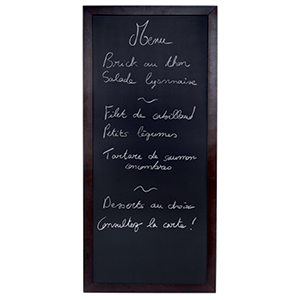 Menu
Brick au thon
Salade lyonnaise
~
Filet de cabillaud
Petits légumes
Tartare de saumon
concombres
~
Desserts au choix
Consultez la carte !